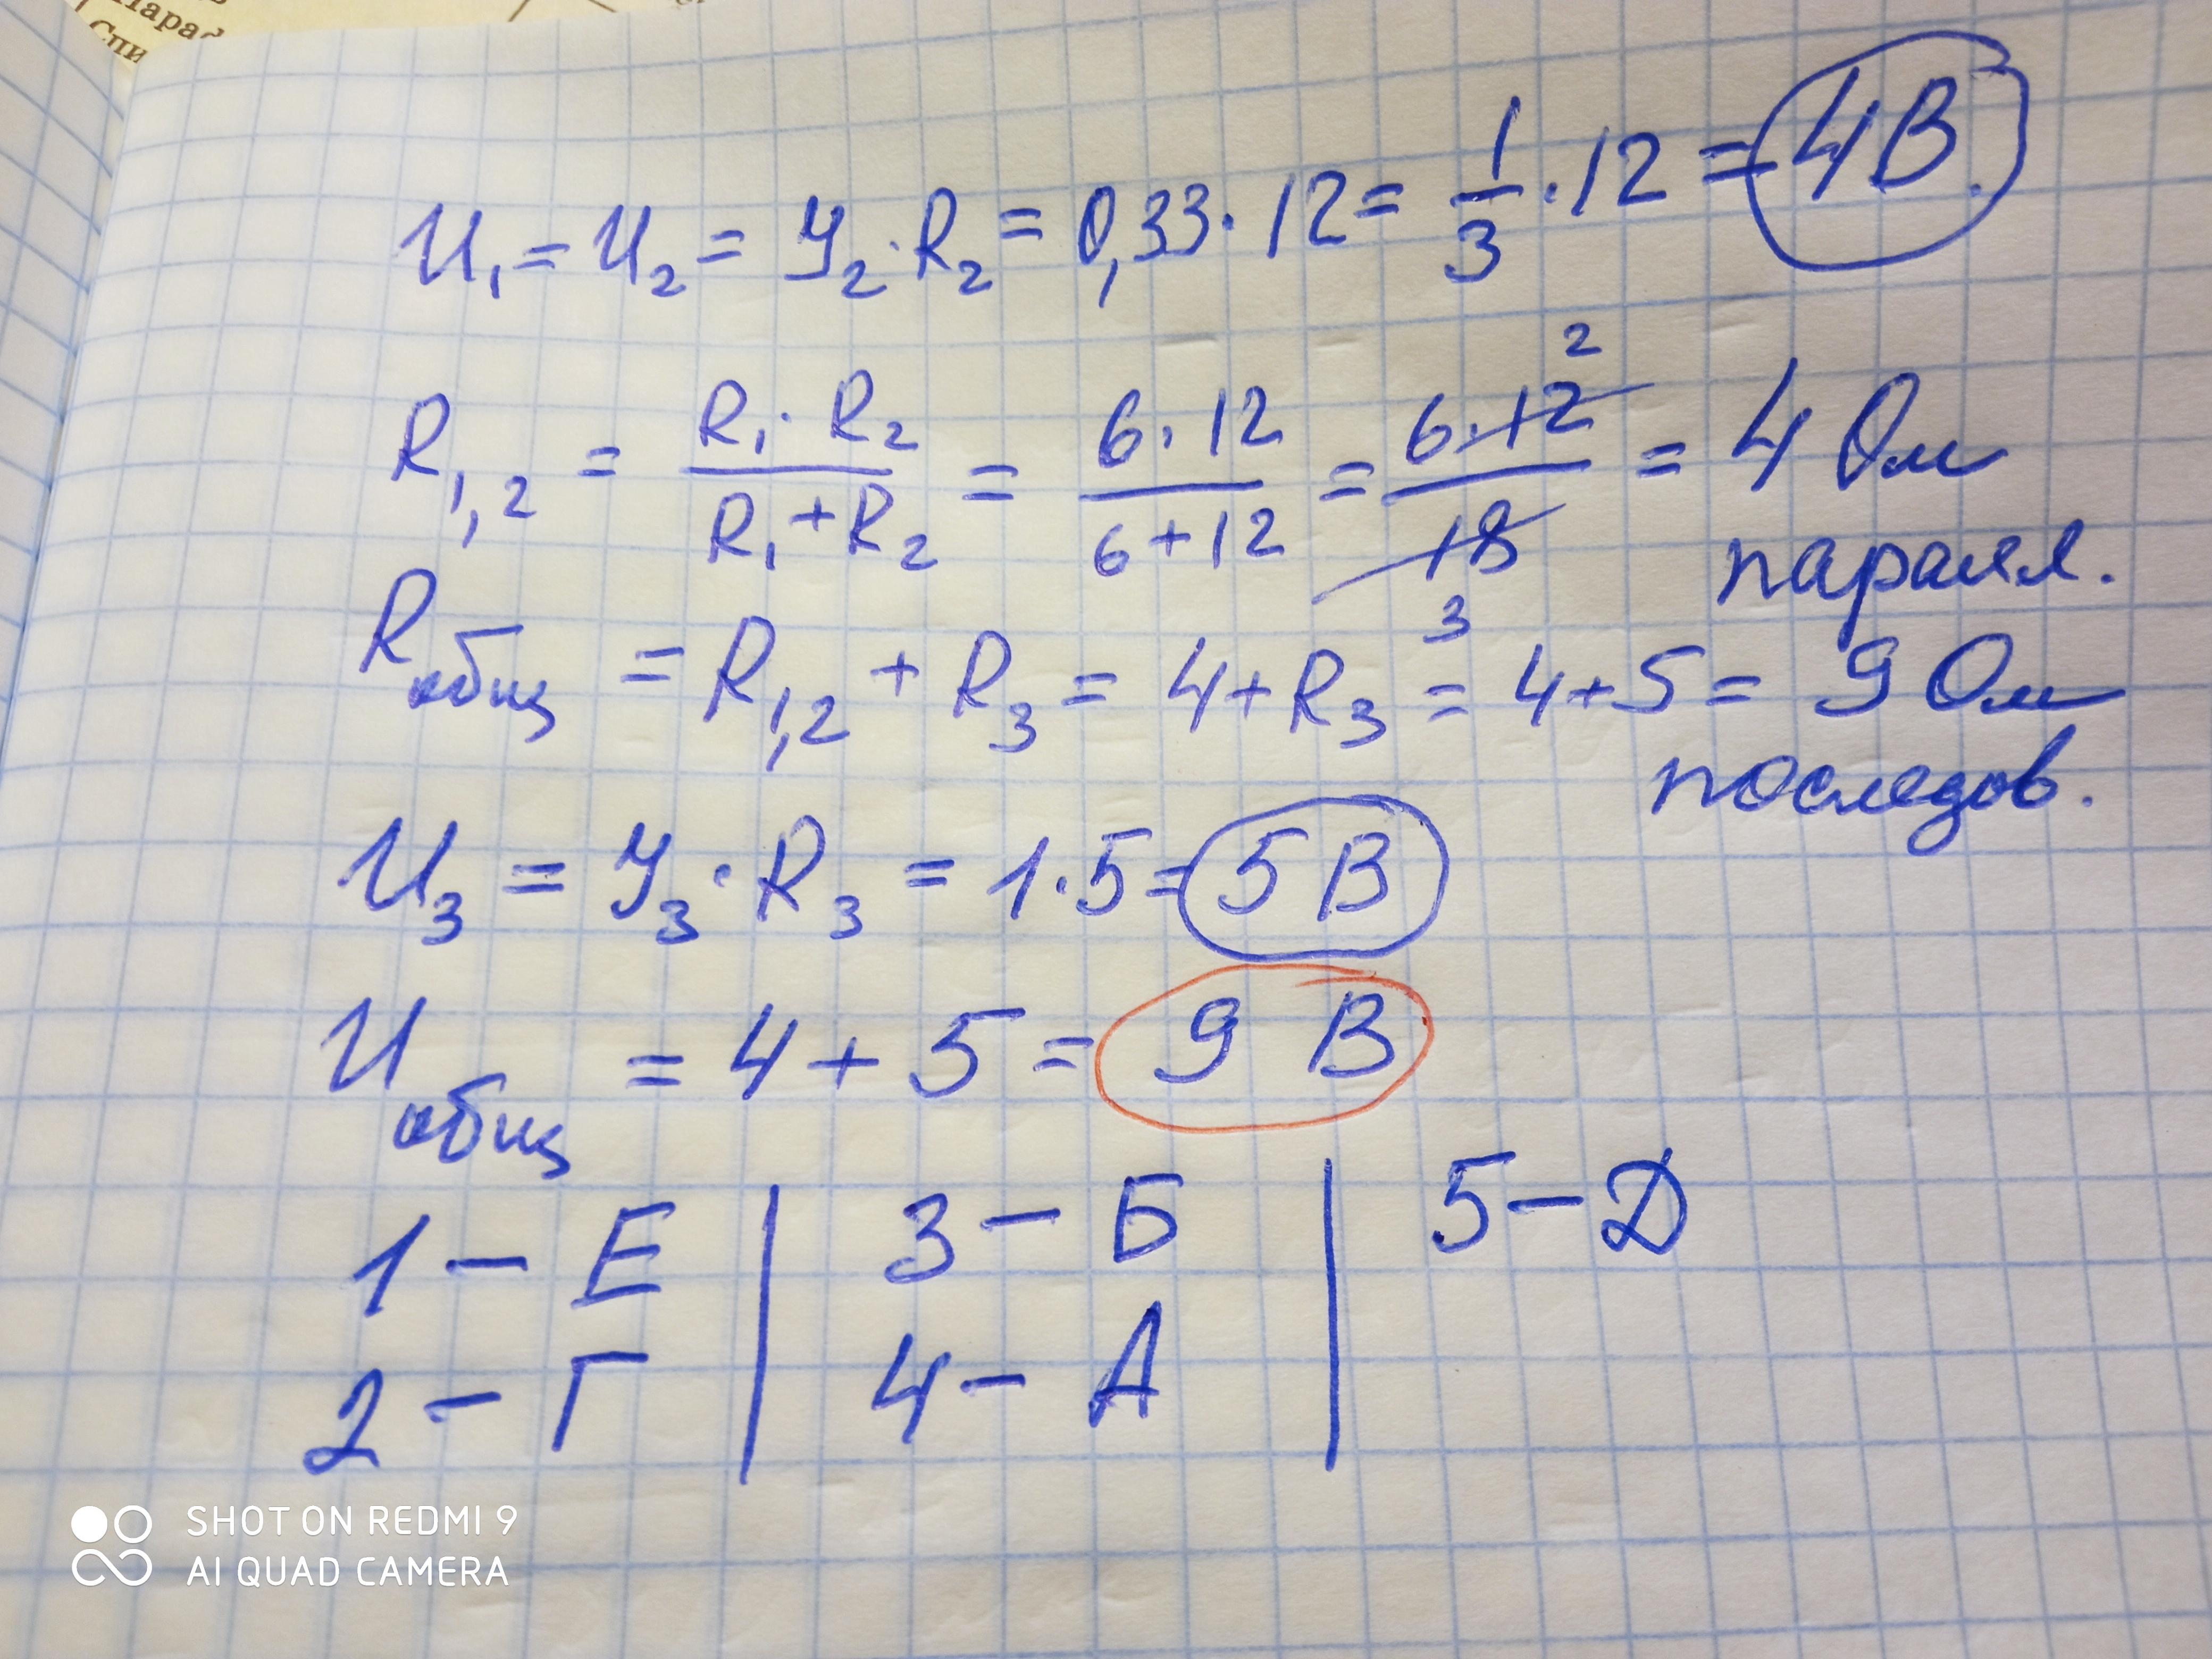 Пара
Спи
U₁ = U₂ = У₂ · R₂ = 0,33 · 12 = 1/3 · 12 = 4В.
R₁,₂ = R₁ · R₂ / R₁ + R₂ = 6 · 12 / 6 + 12 = 6 · 12 2 / 18 3 = 4 Ом
паралл.
Rобщ = R₁,₂ + R₃ = 4 + R₃ = 4 + 5 = 9 Ом
последов.
U₃ = У₃ · R₃ = 1 · 5 = 5 В
Uобщ = 4 + 5 = 9 В
1 – Е | 3 – Б | 5 – Д
2 – Г | 4 – А |
SHOT ON REDMI 9
AI QUAD CAMERA